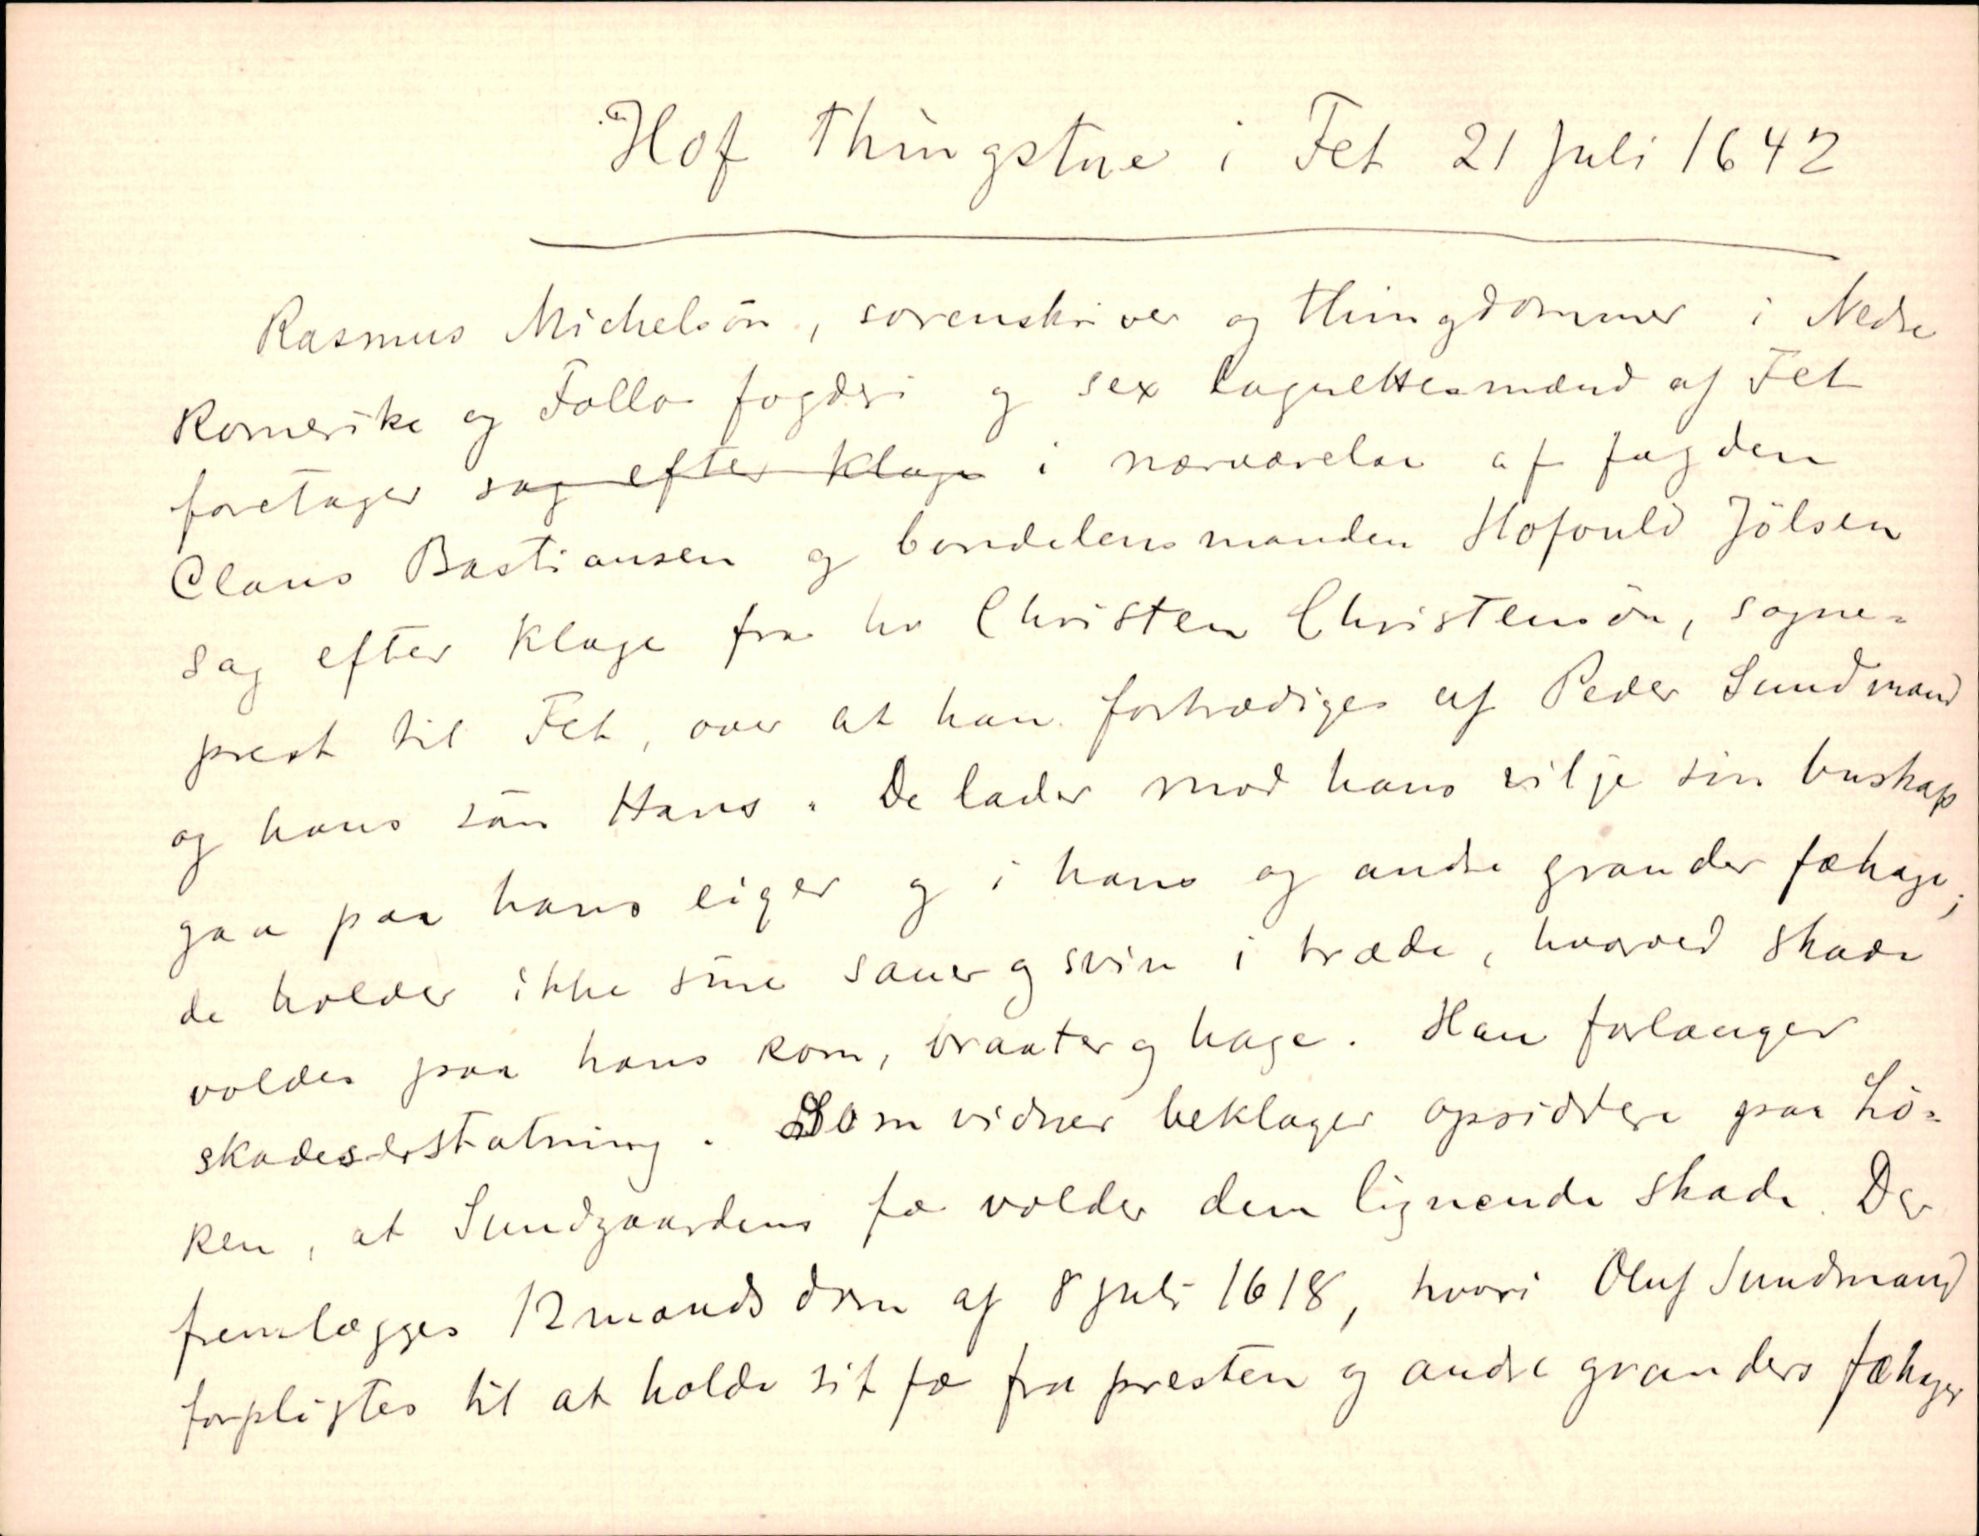 Hof Thingstue i Fet 21 Juli 1642
Rasmus Michelsön, sorenskriver og thingdommer i Nedre
Romerike og Follo fogderi og sex lagrettesmænd af Fet
foretager sag efter klage i nærværelse af fogden
Claus Bastiansen og bondelensmanden Hofvuld Jölsen
sag efter klage fra hr Christen Christensön, sogne-
prest til Fet, over at han fortrædiges af Peder Sundmand
og hans sön Hans. De lader mod hans vilje sin buskap
gaa paa hans eiger og i hans og andre grander fæhage;
de holder ikke sine sauer og svin i træde, hvorved skade
voldes paa hans korn, braater og hage. Han forlanger
skadeserstatning. Som vidner beklager opsiddere paa Lö-
ken, at Sundgaardens fæ volder dem lignende skade. Der
fremlægges 12mandsdom af 8 juli 1618, hvori Oluf Sundmand
forpligtes til at holde sit fæ fra presten og andre granders fæhager